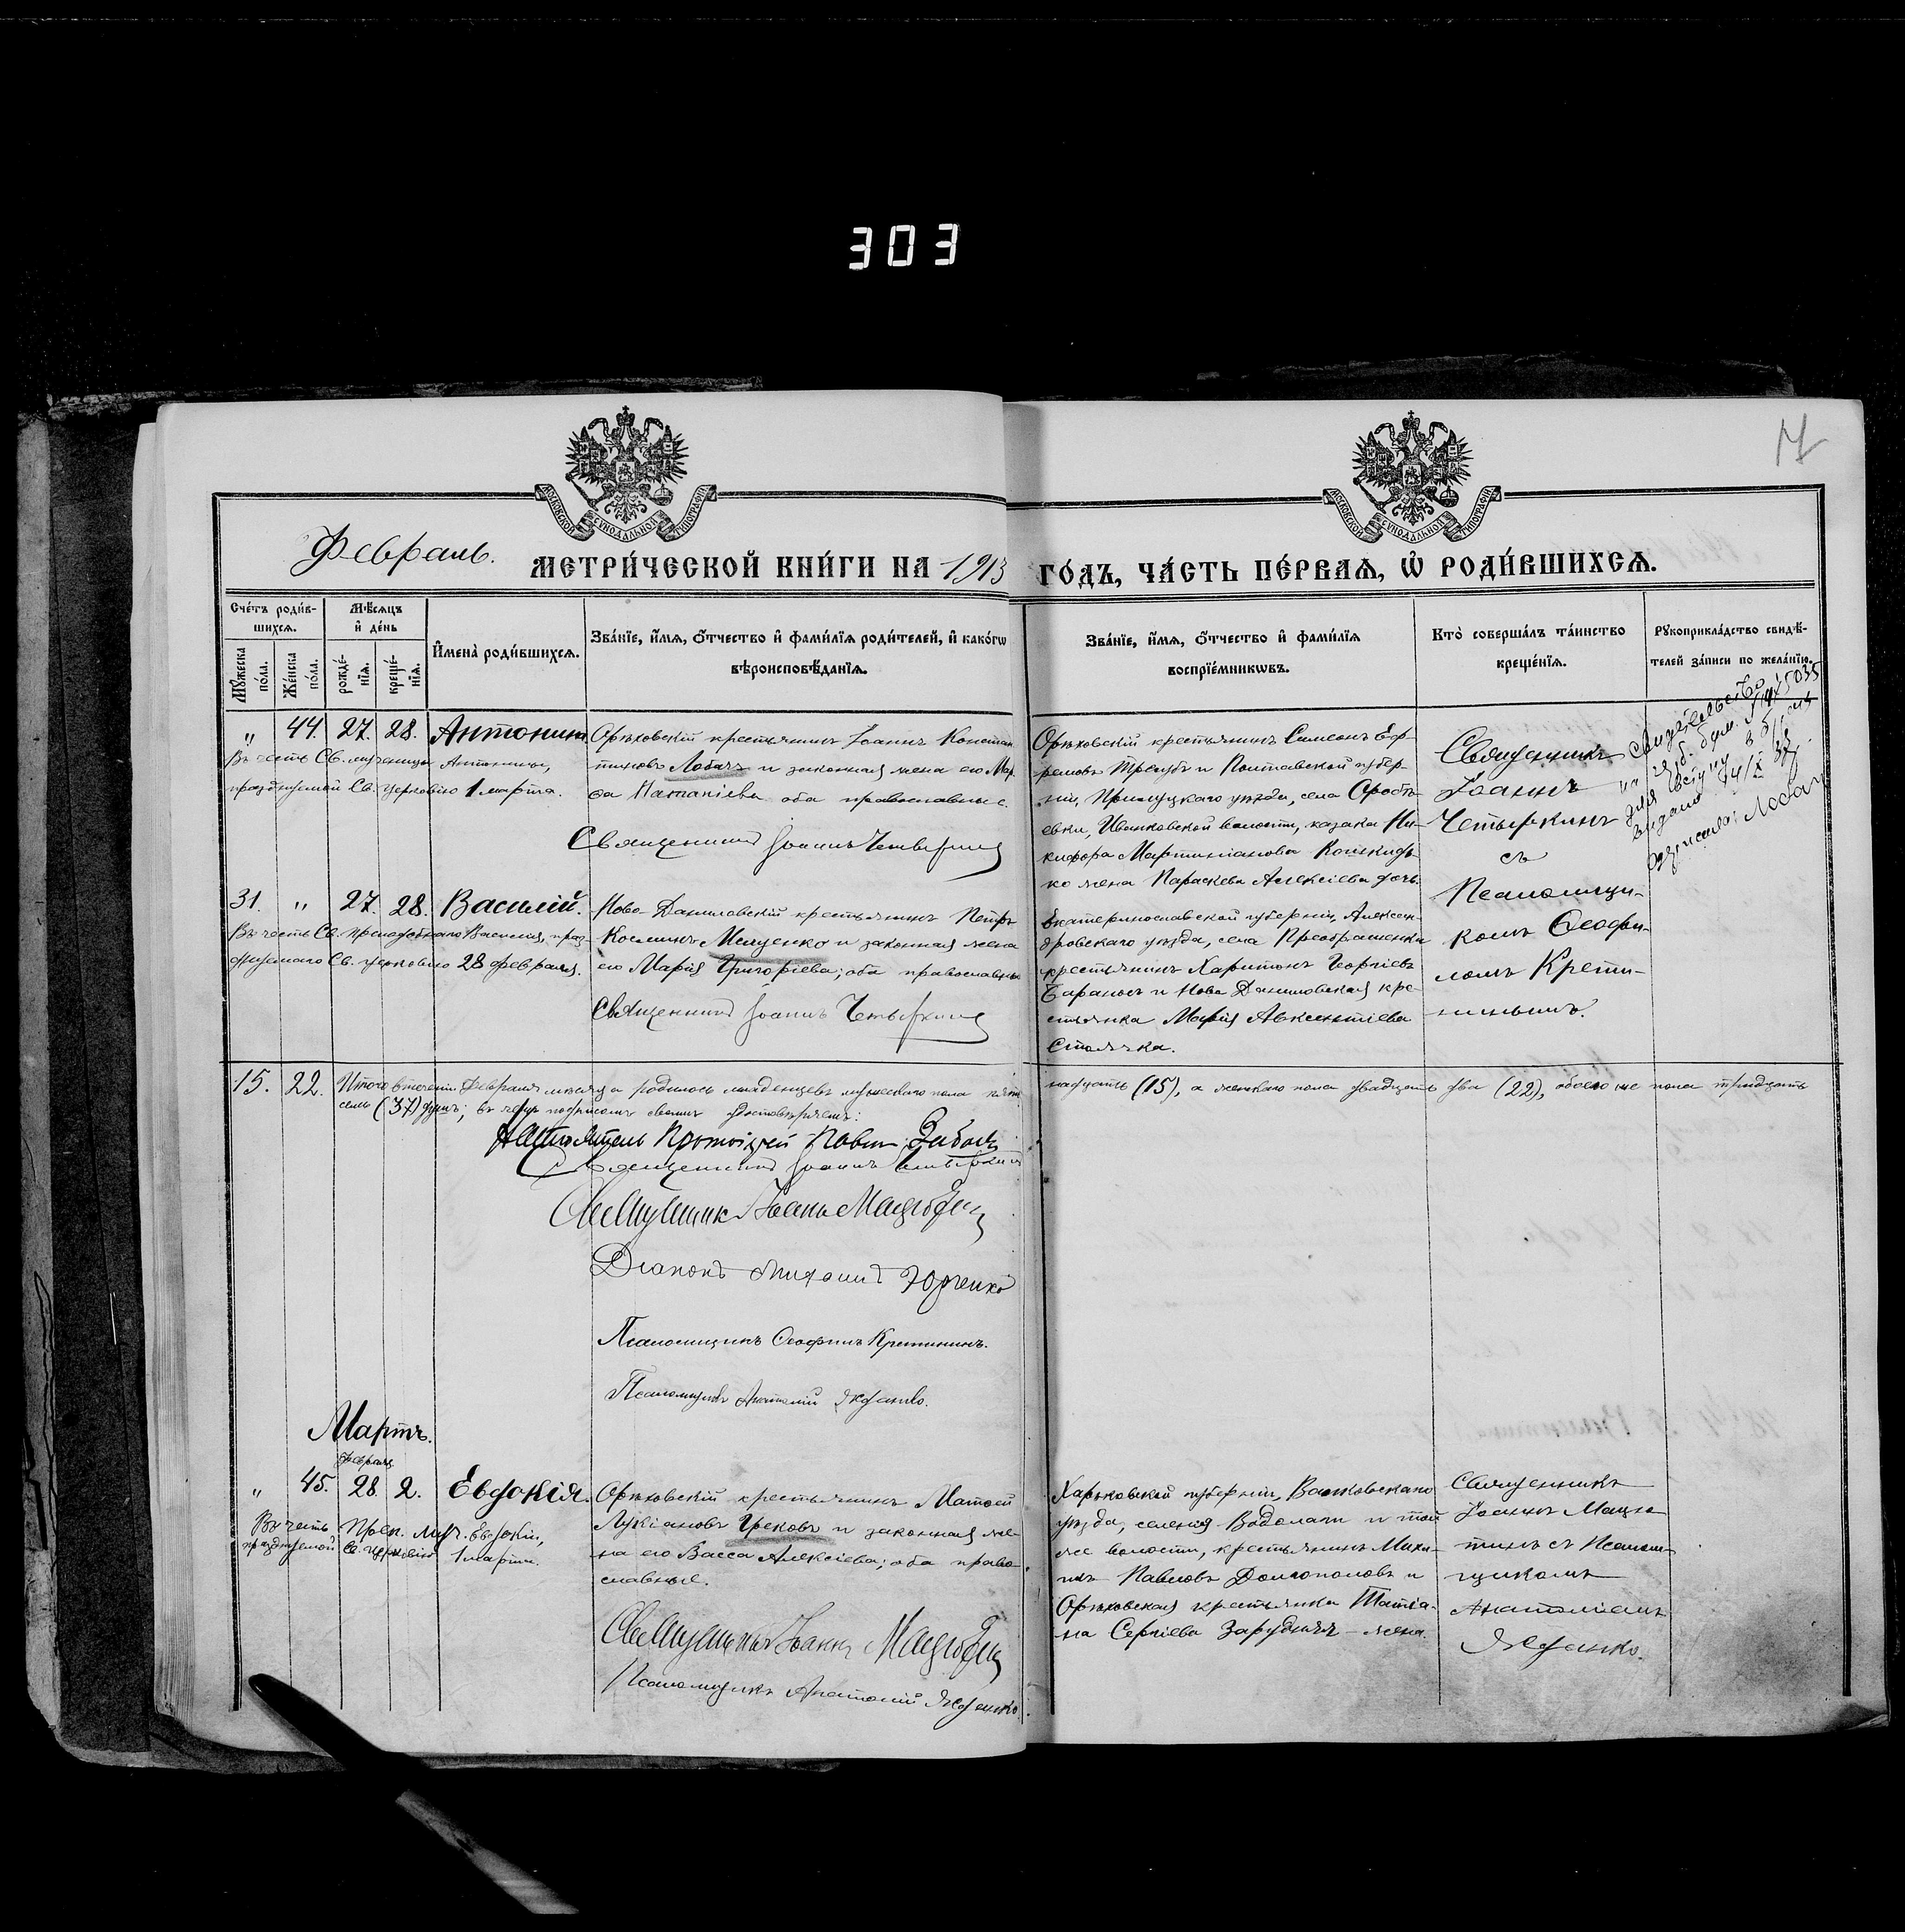 303
17
МОСКОВСКОЙ СУНОДАЛЬНОЙ ТИПОГРАФІИ
МОСКОВСКОЙ СУНОДАЛЬНОЙ ТИПОГРАФІИ
Февраль.
МЕТРИ́ЧЕСКОЙ КНИ́ГИ НА 1913 ГО́ДЪ, ЧА́СТЬ ПЕ́РВАѦ, Ѡ҆ РОДИ́ВШИХСѦ.
Сче́тъ роди́в-
шихсѧ.
Мꙋ́жеска по́ла.
Же́нска по́ла.
Мѣ́сѧцъ
и҆ де́нь
рожде́-
нїѧ.
креще́-
нїѧ.
И҆мена̀ роди́вшихсѧ.
Зва́нїе, и҆́мѧ, ѻ҆́тчество и҆ фами́лїѧ роди́телей, и҆ како́гѡ
вѣроисповѣ́данїѧ.
Зва́нїе, и҆́мѧ, ѻ҆́тчество и҆ фами́лїѧ
воспрїе́мникѡвъ.
Кто̀ соверша́лъ та́инство
креще́нїѧ.
Рꙋкоприкла́дство свидѣ́-
телей за́писи по жела́нїю.
„ 44. 27. 28. Антонина
Въ честь Св. мученицы Антонины,
празднуемой Св. церковію 1 марта.
Орѣховскій крестьянинъ Іоаннъ Констан-
тиновъ Лобачъ и законная жена его Мар-
ѳа оба православные.
Священникъ Іоаннъ Четыркинъ
Орѣховскій крестьянинъ Симеонъ Еф-
ремовъ и Полтавской губер-
ніи, Прилуцкаго уѣзда, села
Иванковской волости, казака Ни-
кифора Мартиніанова
жена Параскева Алексіева
Священникъ
Іоаннъ
Четыркинъ
съ
Псаломщи-
комъ Ѳеофи-
ломъ Крети-
нинымъ.
Свидѣтельство
31. „ 27. 28. Василій.
Въ честь Св. преподобнаго Василія, праз-
днуемаго Св. церковію 28 февраля.
Ново-Даниловскій крестьянинъ Петръ
Косминъ Ищенко и законная жена
его Марія Григоріева; оба православные
Священникъ Іоаннъ Четыркинъ
Екатеринославской губерніи, Алексан-
дровскаго уѣзда, села Преображенки
крестьянинъ Харитонъ Георгіевъ
и Ново-Даниловская кре-
стьянка Марія Авксентіева
15. 22. Итого въ теченіи Февраля мѣсяца родилось младенцевъ мужескаго пола пят-
надцать (15), а женскаго пола двадцать два (22), обоего же пола тридцать
семь (37) душъ; въ чемъ подписомъ своимъ удостовѣряемъ:
Настоятель Протоіерей Павелъ
Священникъ Іоаннъ Четыркинъ
Священник Іоаннъ Мацютинъ
Діаконъ Михаилъ Юрченко
Псаломщикъ Ѳеофилъ Кретининъ.
Псаломщикъ Анатолій
Мартъ.
Февраля
„ 45. 28. 2. Евдокія.
Въ честь Преп. муч. Евдокіи,
празднуемой Св. церковію 1 марта.
Орѣховскій крестьянинъ Матѳей
Лукіановъ Грековъ и законная же-
на его Васса Алексіева; оба право-
славные.
Священникъ Іоаннъ Мацютинъ
Псаломщикъ Анатолій
Харьковской губерніи, Валковскаго
уѣзда, селенія Водолаги и той
же волости, крестьянинъ Миха-
илъ Павловъ Долгополовъ и
Орѣховская крестьянка Татіа-
на Сергіева Заруднаячъ жена.
Священникъ
Іоаннъ Мацю-
тинъ съ Псалом-
щикомъ
Анатоліемъ